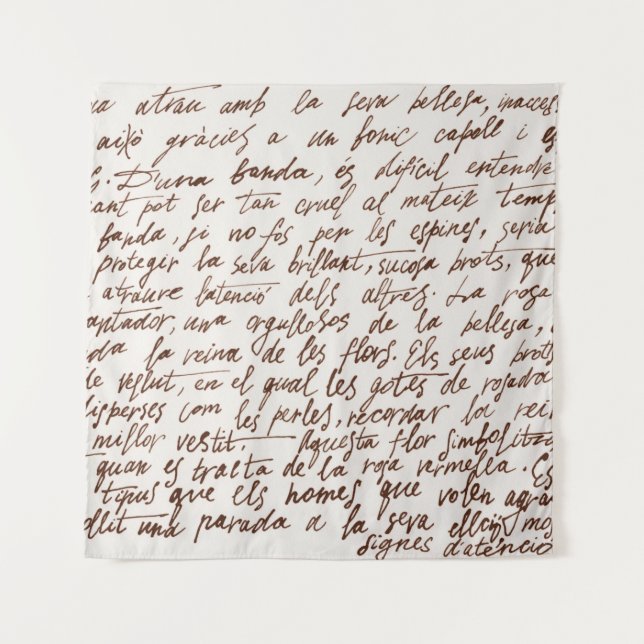 ua atrau amb la seva bellesa, inacces
això gràcies a un fonic capell i es
s. D'una banda, és difícil entendre
ant pot ser tan cruel al mateix temp
banda, si no fos per les espines, seria
protegir la seva brillant, sucosa brots, que
atraure latenció dels altres. La rosa
antador, una orgullosos de la bellesa,
da la reina de les flors. Els seus brots
de vellut, en el qual les gotes de rosada
disperses com les perles, recordar la rei
millor vestit. aquesta flor simbolitza
quan es tralta de la rosa vermella. Es
tipus que els homes que volen agra
llit una parada a la seva elecció mos
signes d'atenció